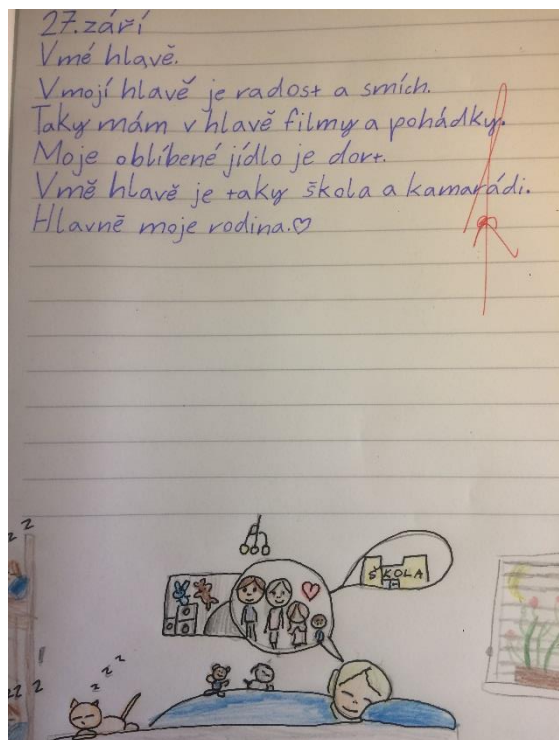 27. září
Vmé hlavě.
Vmojí hlavě je radost a smích.
Taky mám v hlavě filmy a pohádky.
Moje oblíbené jídlo je dort.
Vmě hlavě je taky škola a kamarádi.
Hlavně moje rodina.♡
ŠKOLA
z z
z z z
z z z